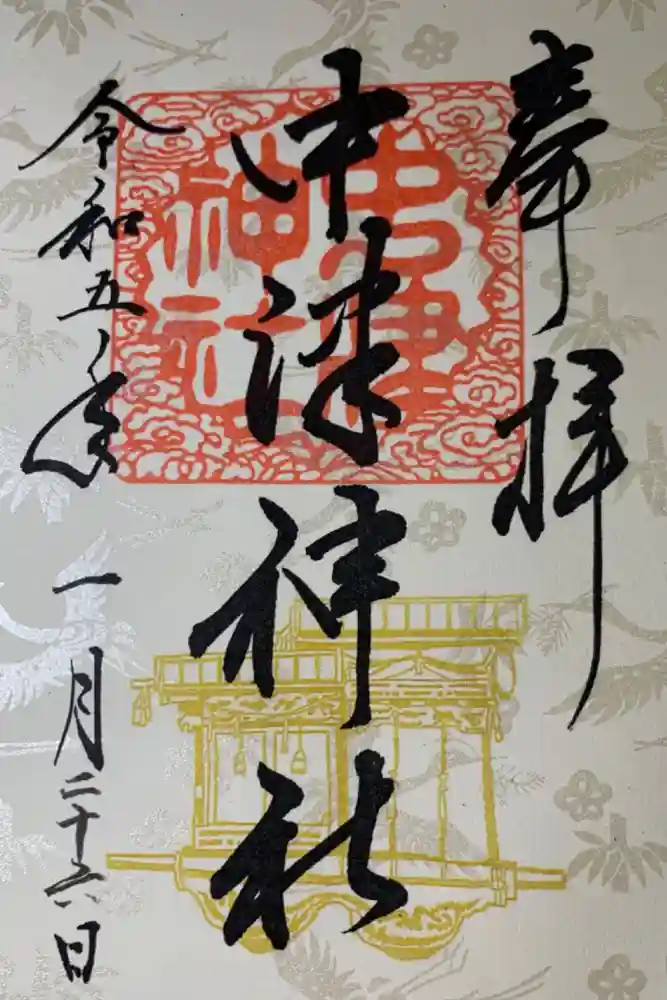 奉拝
中津神社
中津
神社
令和五年
一月二十六日